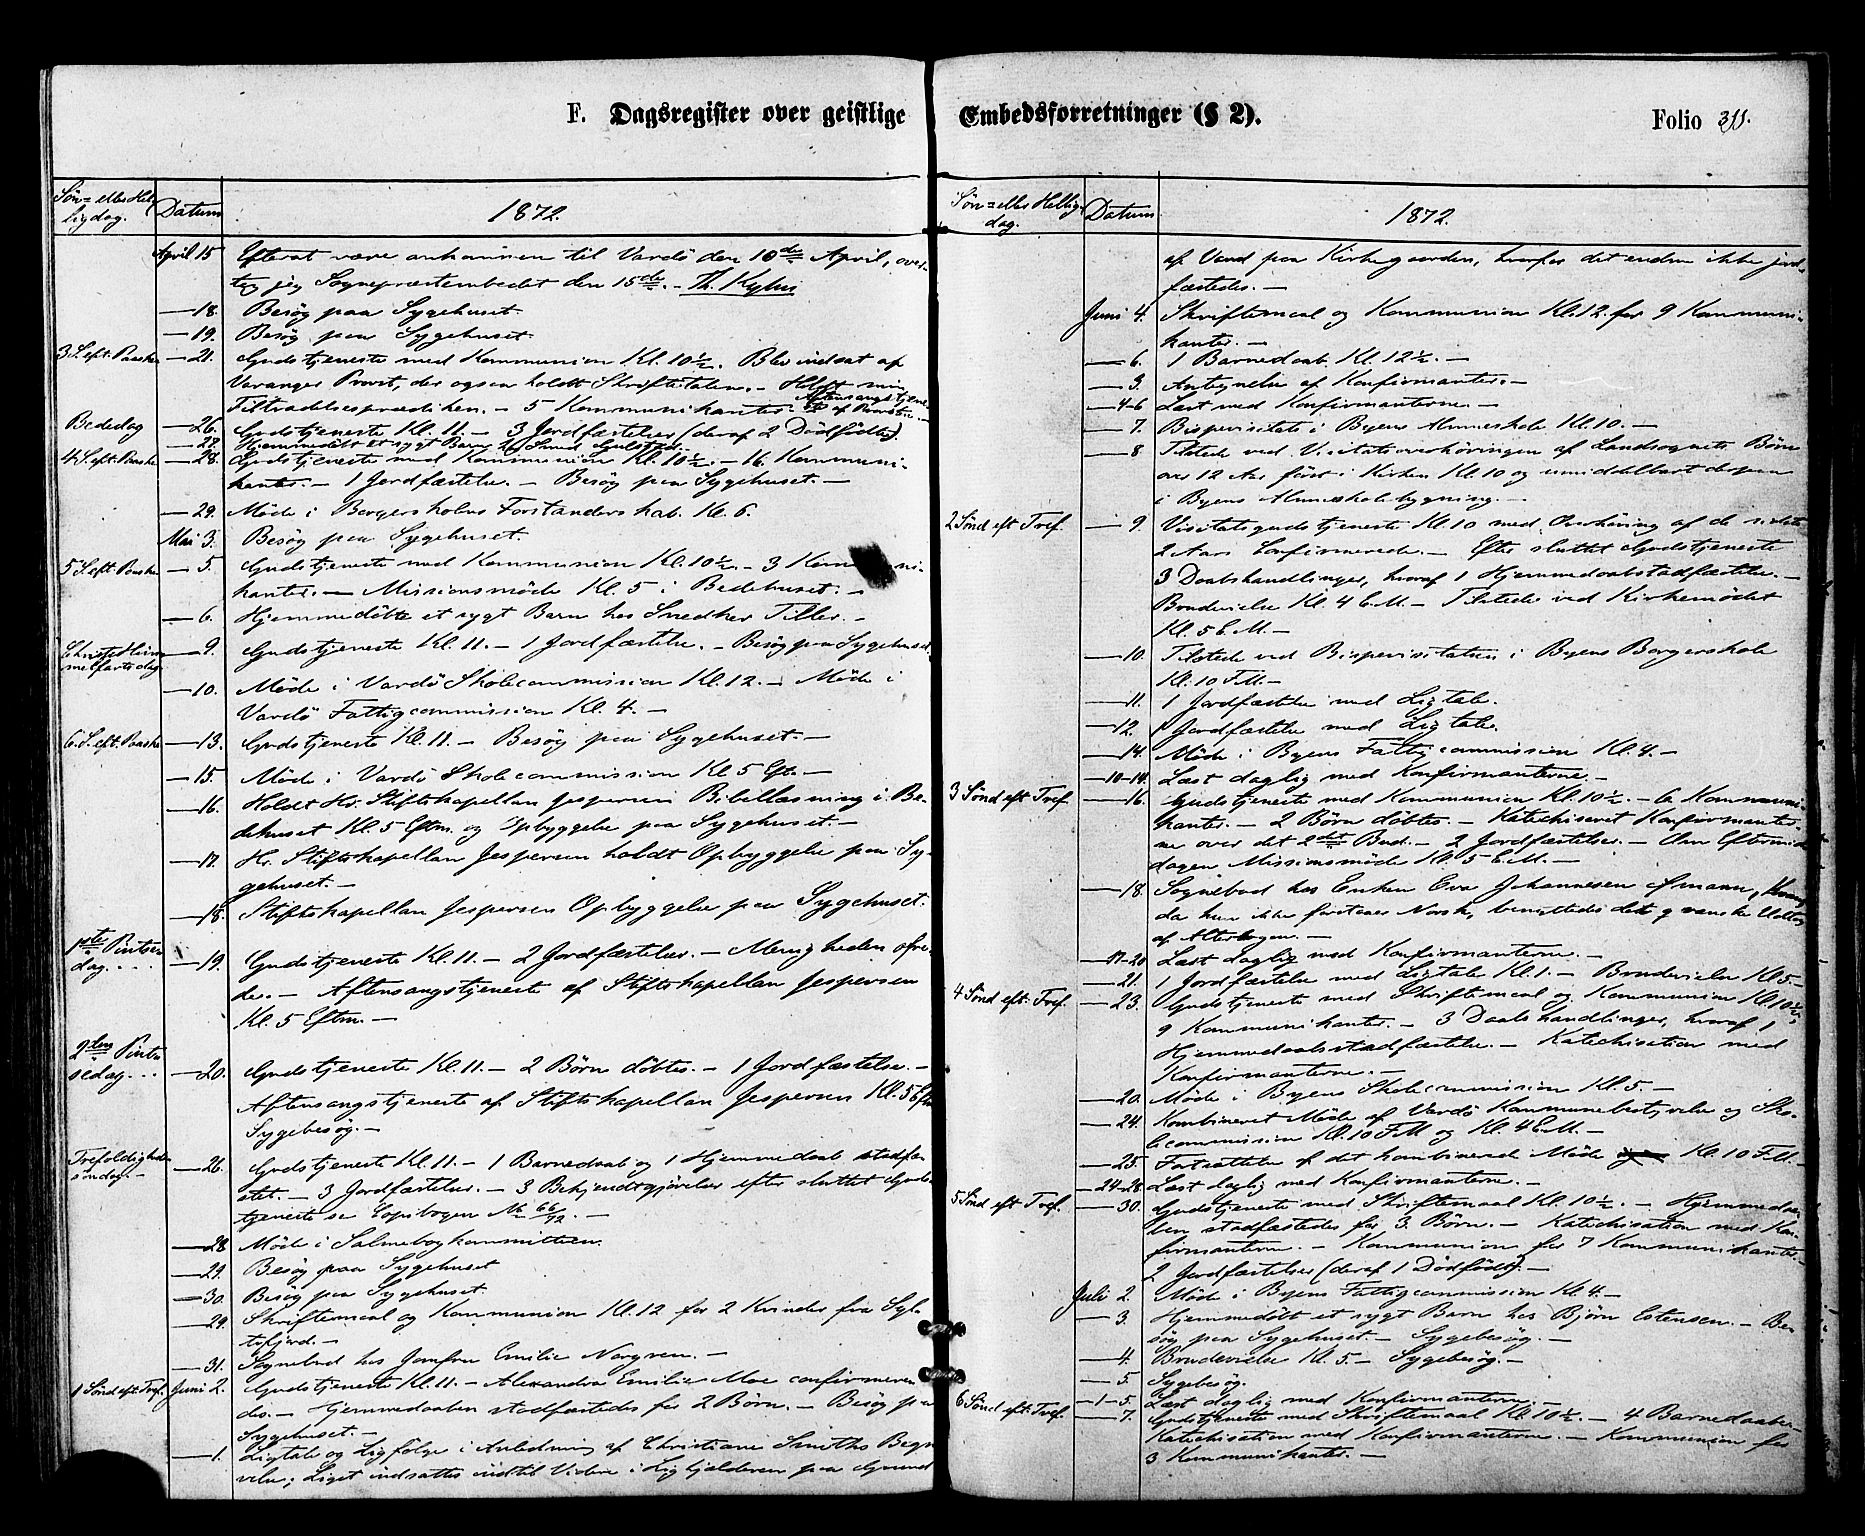 F. Dagsregister over geistlige
Søn- eller Hel-
ligdag.
Datum
1872.
April 15 Efterat være ankommen til Vardö den 10de April, over-
tog jeg Sognepræstembedet den 15de. – Th. Kyhus
— 18. Besøg paa Sygehuset.
— 19. Besøg paa Sygehuset.
3 S. eft. Paaske — 21. Gudstjeneste med Kommunion Kl. 10½. Blev indsat af
Varanger Provst, der ogsaa holdt Skriftetalen. – Holdt min
Tiltrædelsesprædiken. – 5 Kommunikanter. – Aftensangstjene-
ste af Provsten. –
Bededag — 26. Gudstjeneste Kl. 11. – 3 Jordfæstelser (deraf 2 Dødfödte).
— 28. Hjemmedöbt et sygt Barn
4 S. eft. Paaske — 28. Gudstjeneste med Kommunion Kl. 10½. – 16 Kommuni-
kanter. – 1 Jordfæstelse. – Besøg paa Sygehuset. –
— 29. Møde i Borgerskolens Forstanderskab. Kl. 6.
Mai 3. Besøg paa Sygehuset.
5 S. eft. Paaske — 5. Gudstjeneste med Kommunion Kl. 10½. – 3 Kommuni-
kanter. – Missionsmøde Kl. 5 i Bedehuset. –
— 6. Hjemmedöbte et sygt Barn hos Snedker Tiller. –
Christi Him-
melfartsdag — 9. Gudstjeneste Kl. 11. – 1 Jordfæstelse. – Besøg paa Sygehuset.
— 10. Møde i Vardö Skolecommission Kl. 12. – Møde i
Vardö Fattigcommission Kl. 4. –
6. S. eft. Paaske — 13. Gudstjeneste Kl. 11. – Besøg paa Sygehuset. –
— 15. Møde i Vardö Skolecommission Kl 5 Eft. –
— 16. Holdt Hr. Stiftskapellan Jespersen Bibellæsning i Be-
dehuset Kl. 5 Eftm. og Opbyggelse paa Sygehuset. –
— 17. Hr. Stiftskapellan Jespersen holdt Opbyggelse paa Sy-
gehuset. –
— 18. Stiftskapellan Jespersen Opbyggelse paa Sygehuset.
1ste Pintse-
dag.... — 19. Gudstjeneste Kl. 11. – 2 Jordfæstelser. – Menigheden ofre-
de. – Aftensangstjeneste af Stiftskapellan Jespersen
Kl. 5 Eftm. –
2den Pint-
sedag... — 20. Gudstjeneste Kl. 11. – 2 Børn döbtes. – 1 Jordfæstelse. –
Aftensangstjeneste af Stiftskapellan Jespersen Kl. 5 Eftm
Sygebesøg. –
Trefoldigheds
søndag. – — 26. Gudstjeneste Kl. 11. – 1 Barnedaab og 1 Hjemmedaab stadfæ-
stet. – 3 Jordfæstelser. – 3 Bekjendtgjørelser efter sluttet Guds-
tjeneste se Copibogen No 66/72. –
— 28 Møde i Salmebogkommitteen.
— 29. Besøg paa Sygehuset
— 30. Besøg paa Sygehuset.
— 29. Skriftemaal og Kommunion Kl. 12 for 2 Kvinder fra Syl-
tefjord. –
— 31. Sognebud hos Jomfru Emilie Norgren. –
1 Sønd eft. Tref. Juni 2. Gudstjeneste Kl. 11. – Alexandra Emilie Moe confirmere-
des. – Hjemmedaaben stadfæstedes for 2 Børn. – Besøg paa
Sygehuset. –
— 1. Ligtale og Ligfølge i Anledning af Christiane Smiths Begra-
velse; Liget indsattes indtil Videre i Ligkjælderen paa Grund
Embedsforretninger (§ 2).
Folio 311.
Søn- eller Hellig-
dag.
Datum.
1872.
af Vand paa Kirkegaarden, hvorfor det endnu ikke jord-
fæstedes. –
Juni 4. Skriftemaal og Kommunion Kl. 12 for 9 Kommuni-
kanter. –
— 6. 1 Barnedaab Kl. 12½. –
— 3. Antegnelse af Konfirmanter. –
— 4-6 Læst med Konfirmanterne. –
— 7. Bispevisitats i Byens Almueskole Kl. 10. –
— 8 Tilstede ved Visitatsoverhøringen af Landsognets Børn
over 12 Aar först i Kirken Kl. 10 og umiddelbart derpaa
i Byens Almueskolebygning. –
2 Sønd eft Tref. — 9. Visitatsgudstjeneste Kl. 10 med Overhøring af de sidste
2 Aars Confirmerede. – Efter sluttet Gudstjeneste
3 Daabshandlinger, hvoraf 1 Hjemmedaabstadfæstelse. –
Brudevielse Kl. 4 E.M. – Tilstede ved Kirkemødet
Kl. 5 E.M. –
— 10. Tilstede ved Bispevisitatsen i Byens Borgerskole
Kl. 10 F.M. –
— 11. 1 Jordfæstelse med Ligtale.
— 12. 1 Jordfæstelse med Ligtale.
— 14. Møde i Byens Fattigcommission Kl. 4. –
— 10-14. Læst daglig med Konfirmanterne. –
3 Sønd eft Tref — 16. Gudstjeneste med Kommunion Kl. 10½. – 6 Kommuni-
kanter. – 2 Børn döbtes. – Katechiseret Konfirmanter-
ne over det 2det Bud. – 2 Jordfæstelser. – Om Eftermid-
dagen Missionsmøde Kl. 5 E.M. –
— 18. Sognebud hos Enken Eva Johannesen
da hun ikke forstaaer Norsk, benyttedes det qvænske Udtog
af Alterbogen. –
— 17-20 Læst daglig med Konfirmanterne. –
— 21. 1 Jordfæstelse med Ligtale Kl. 1. – Brudevielse Kl 5. –
4 Sønd eft. Tref. — 23. Gudstjeneste med Skriftemaal og Kommunion Kl 10½,
9 Kommunikanter. – 3 Daabshandlinger, hvoraf 1
Hjemmedaabsstadfæstelse. – Katechisation med
Konfirmanterne. –
— 20. Møde i Byens Skolecommission Kl. 5 –
— 24. Kombineret Møde af Vardö Kommunebestyrelse og Sko-
lecommission Kl. 10 F.M og Kl. 4 E.M. –
— 25. Fortsættelse af det kombinerede Møde Kl. 10 F.M. –
— 24-28. Læst daglig med Konfirmanterne. –
5 Sønd eft Tref. — 30. Gudstjeneste med Skriftemaal Kl. 10½. – Hjemmedaa-
ben stadfæstedes for 3 Børn. – Katechisation med Kon-
firmanterne. – Kommunion for 7 Kommunikanter.
2 Jordfæstelser (deraf 1 Dødfödt). –
Juli 2. Møde i Byens Fattigcommission Kl. 4. –
— 3. Hjemmedöbt et sygt Barn hos Björn Estensen. – Be-
søg paa Sygehuset – Sygebesøg. –
— 4. Brudevielse Kl. 5. – Sygebesøg. –
— 5. Sygebesøg.
— 1-5. Læst daglig med Konfirmanterne. –
6 Sønd eft. Tref. — 7. Gudstjeneste med Skriftemaal Kl 10½. – 4 Barnedaabe.
Katechisation med Konfirmanterne. – Kommunion for
3 Kommunikanter. –